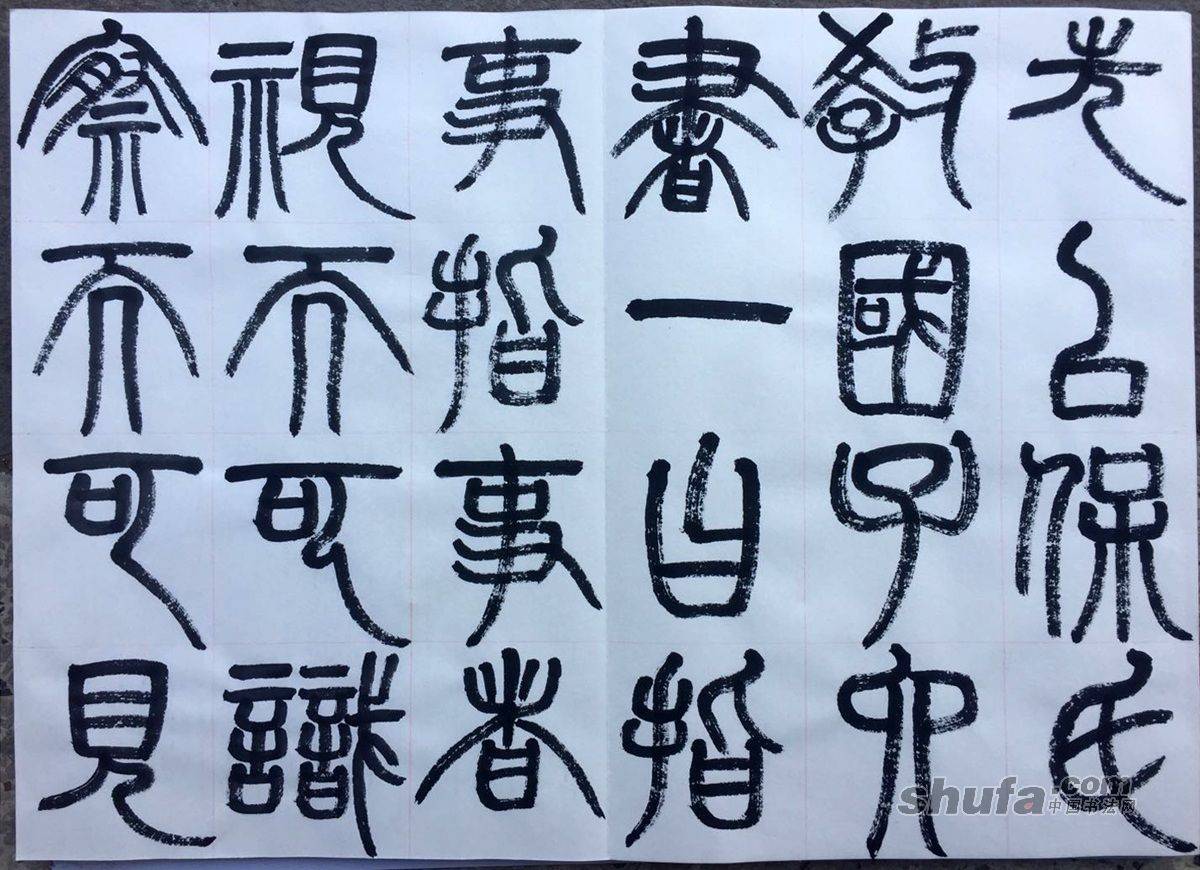 先以保氏
教國子六
書一曰指
事指事者
視而可識
察而可見
shufa.com
中国书法网